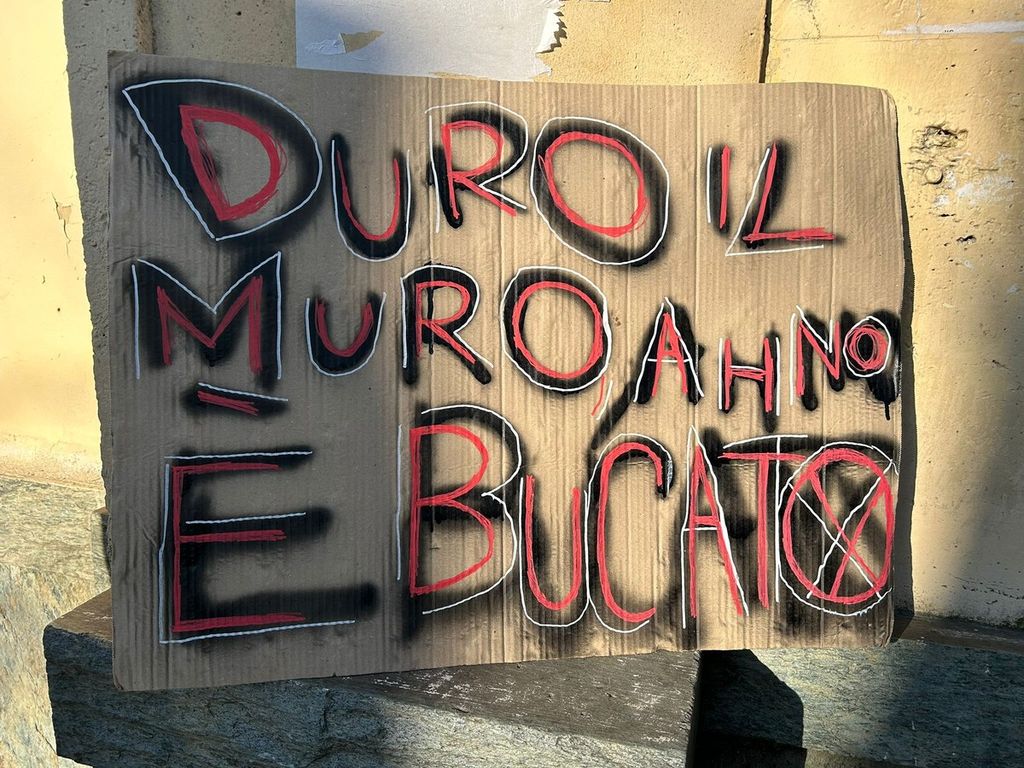 DURO IL
MURO, AH NO
È BUCATO